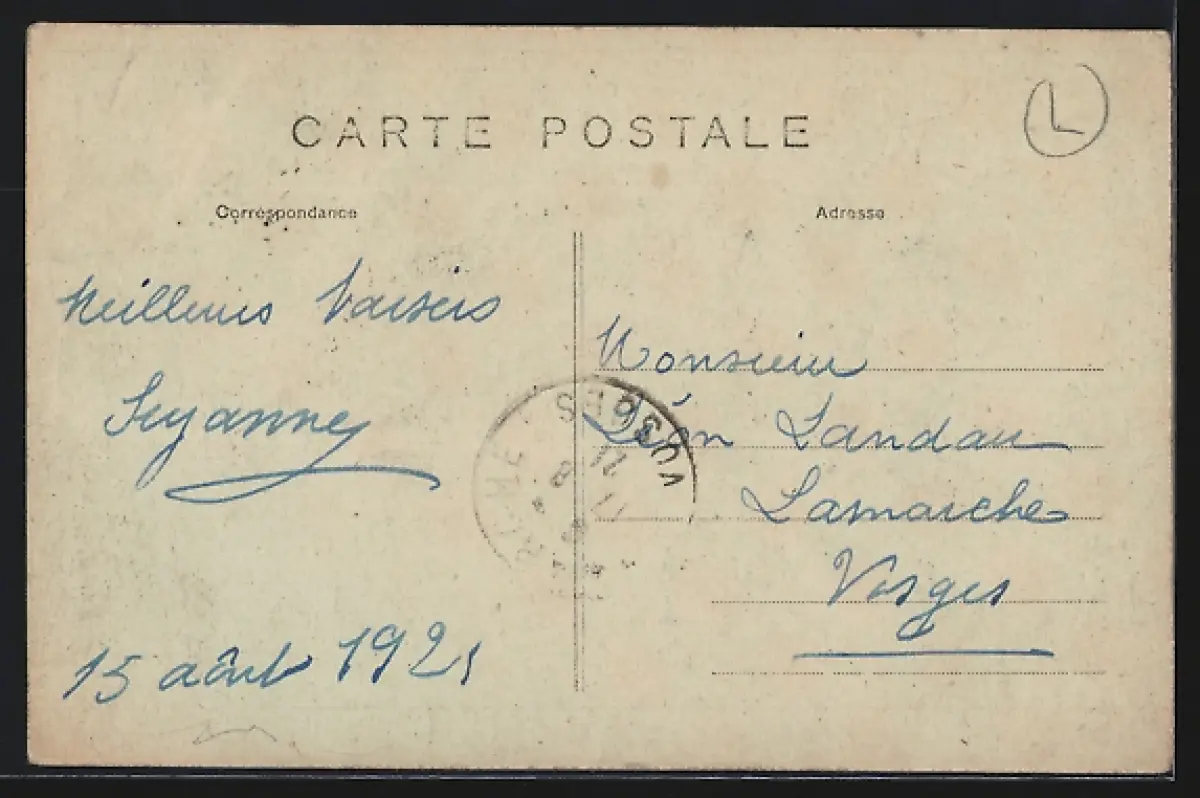 CARTE POSTALE
L
Correspondance
Adresse
Meilleurs baisers
Suzanne
15 août 1921
Monsieur
Léon Landau
Lamarche
Vosges
VOSGES